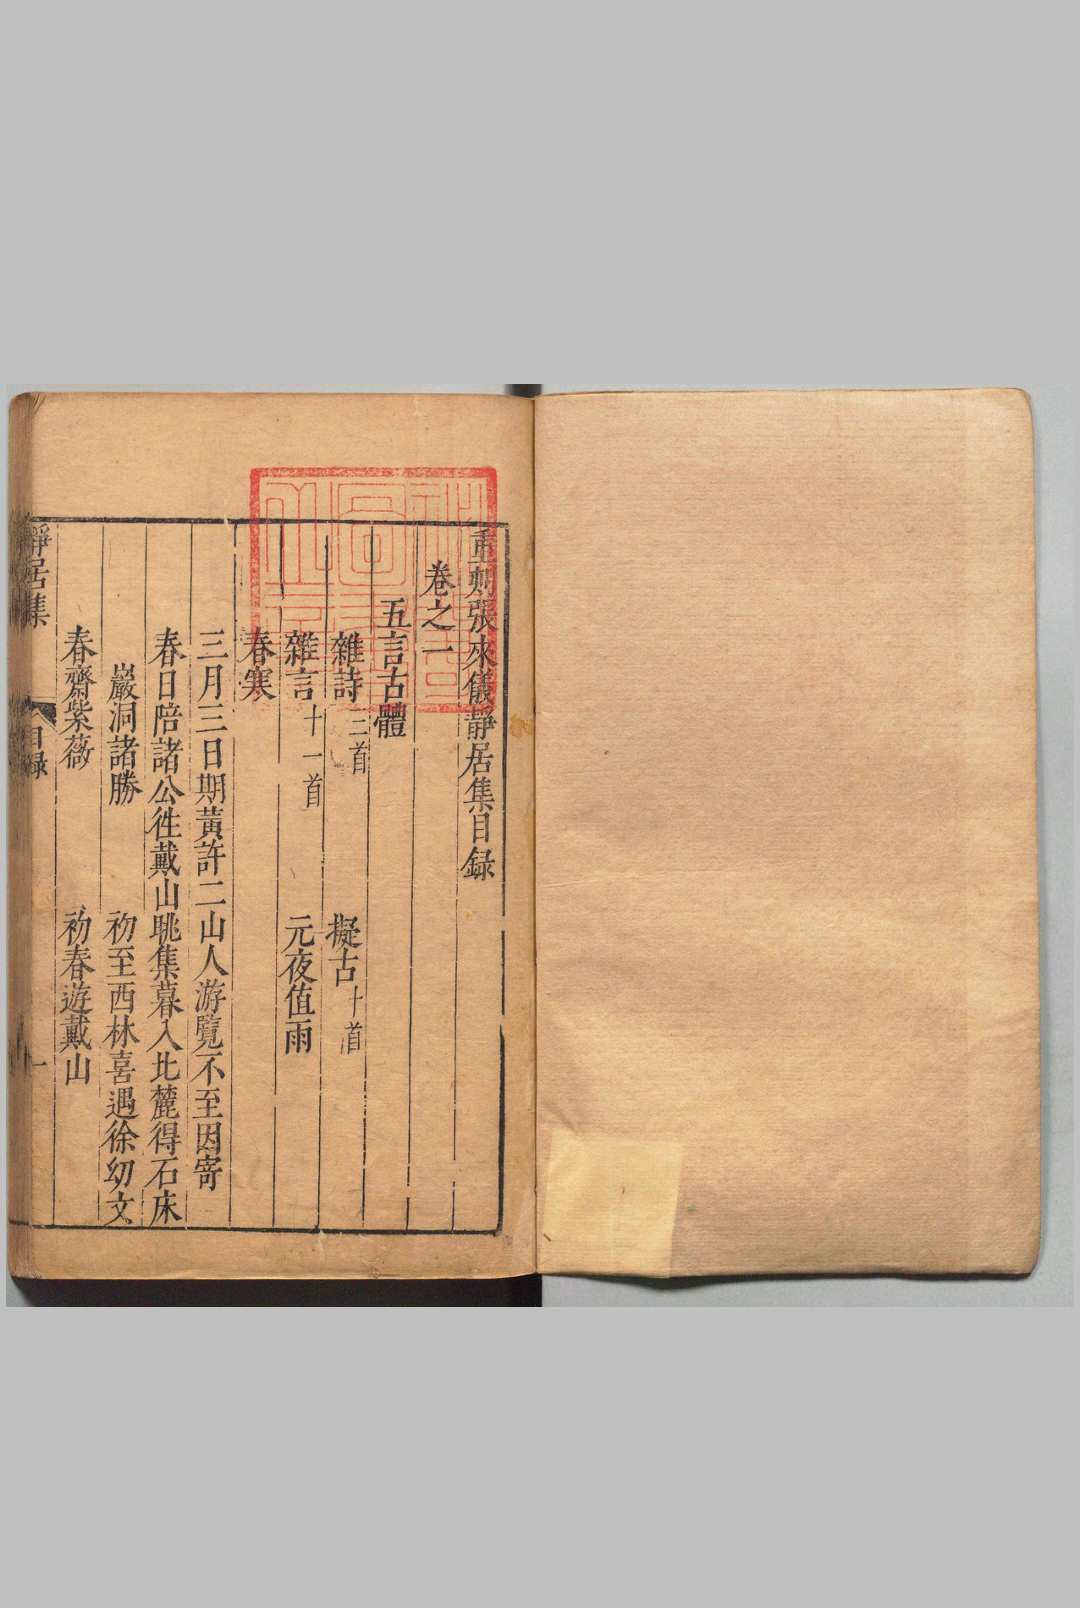 重刻張來儀靜居集目録
卷之一
五言古體
雜詩三首 擬古十首
雜言十一首 元夜值雨
春寒
三月三日期黃許二山人游覽不至因寄
春日陪諸公徃戴山眺集暮入北麓得石床
巖洞諸勝 初至西林喜遇徐幼文
春齋紫薇 初春遊戴山
靜居集 目録 一